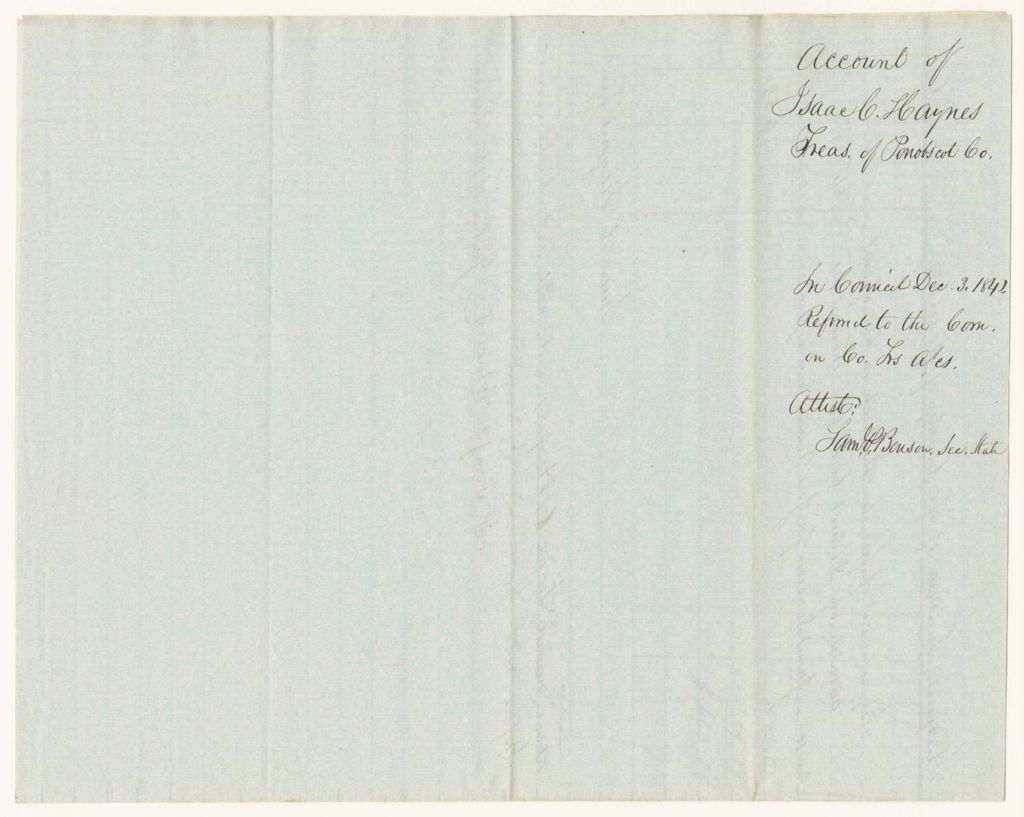 Account of
Isaac C. Haynes
Treas. of Penobscot Co.
In Council Dec. 3, 1841
Referred to the Com.
on Co. Trs Acs.
Attest:
Saml. C. Benson, Sec. State